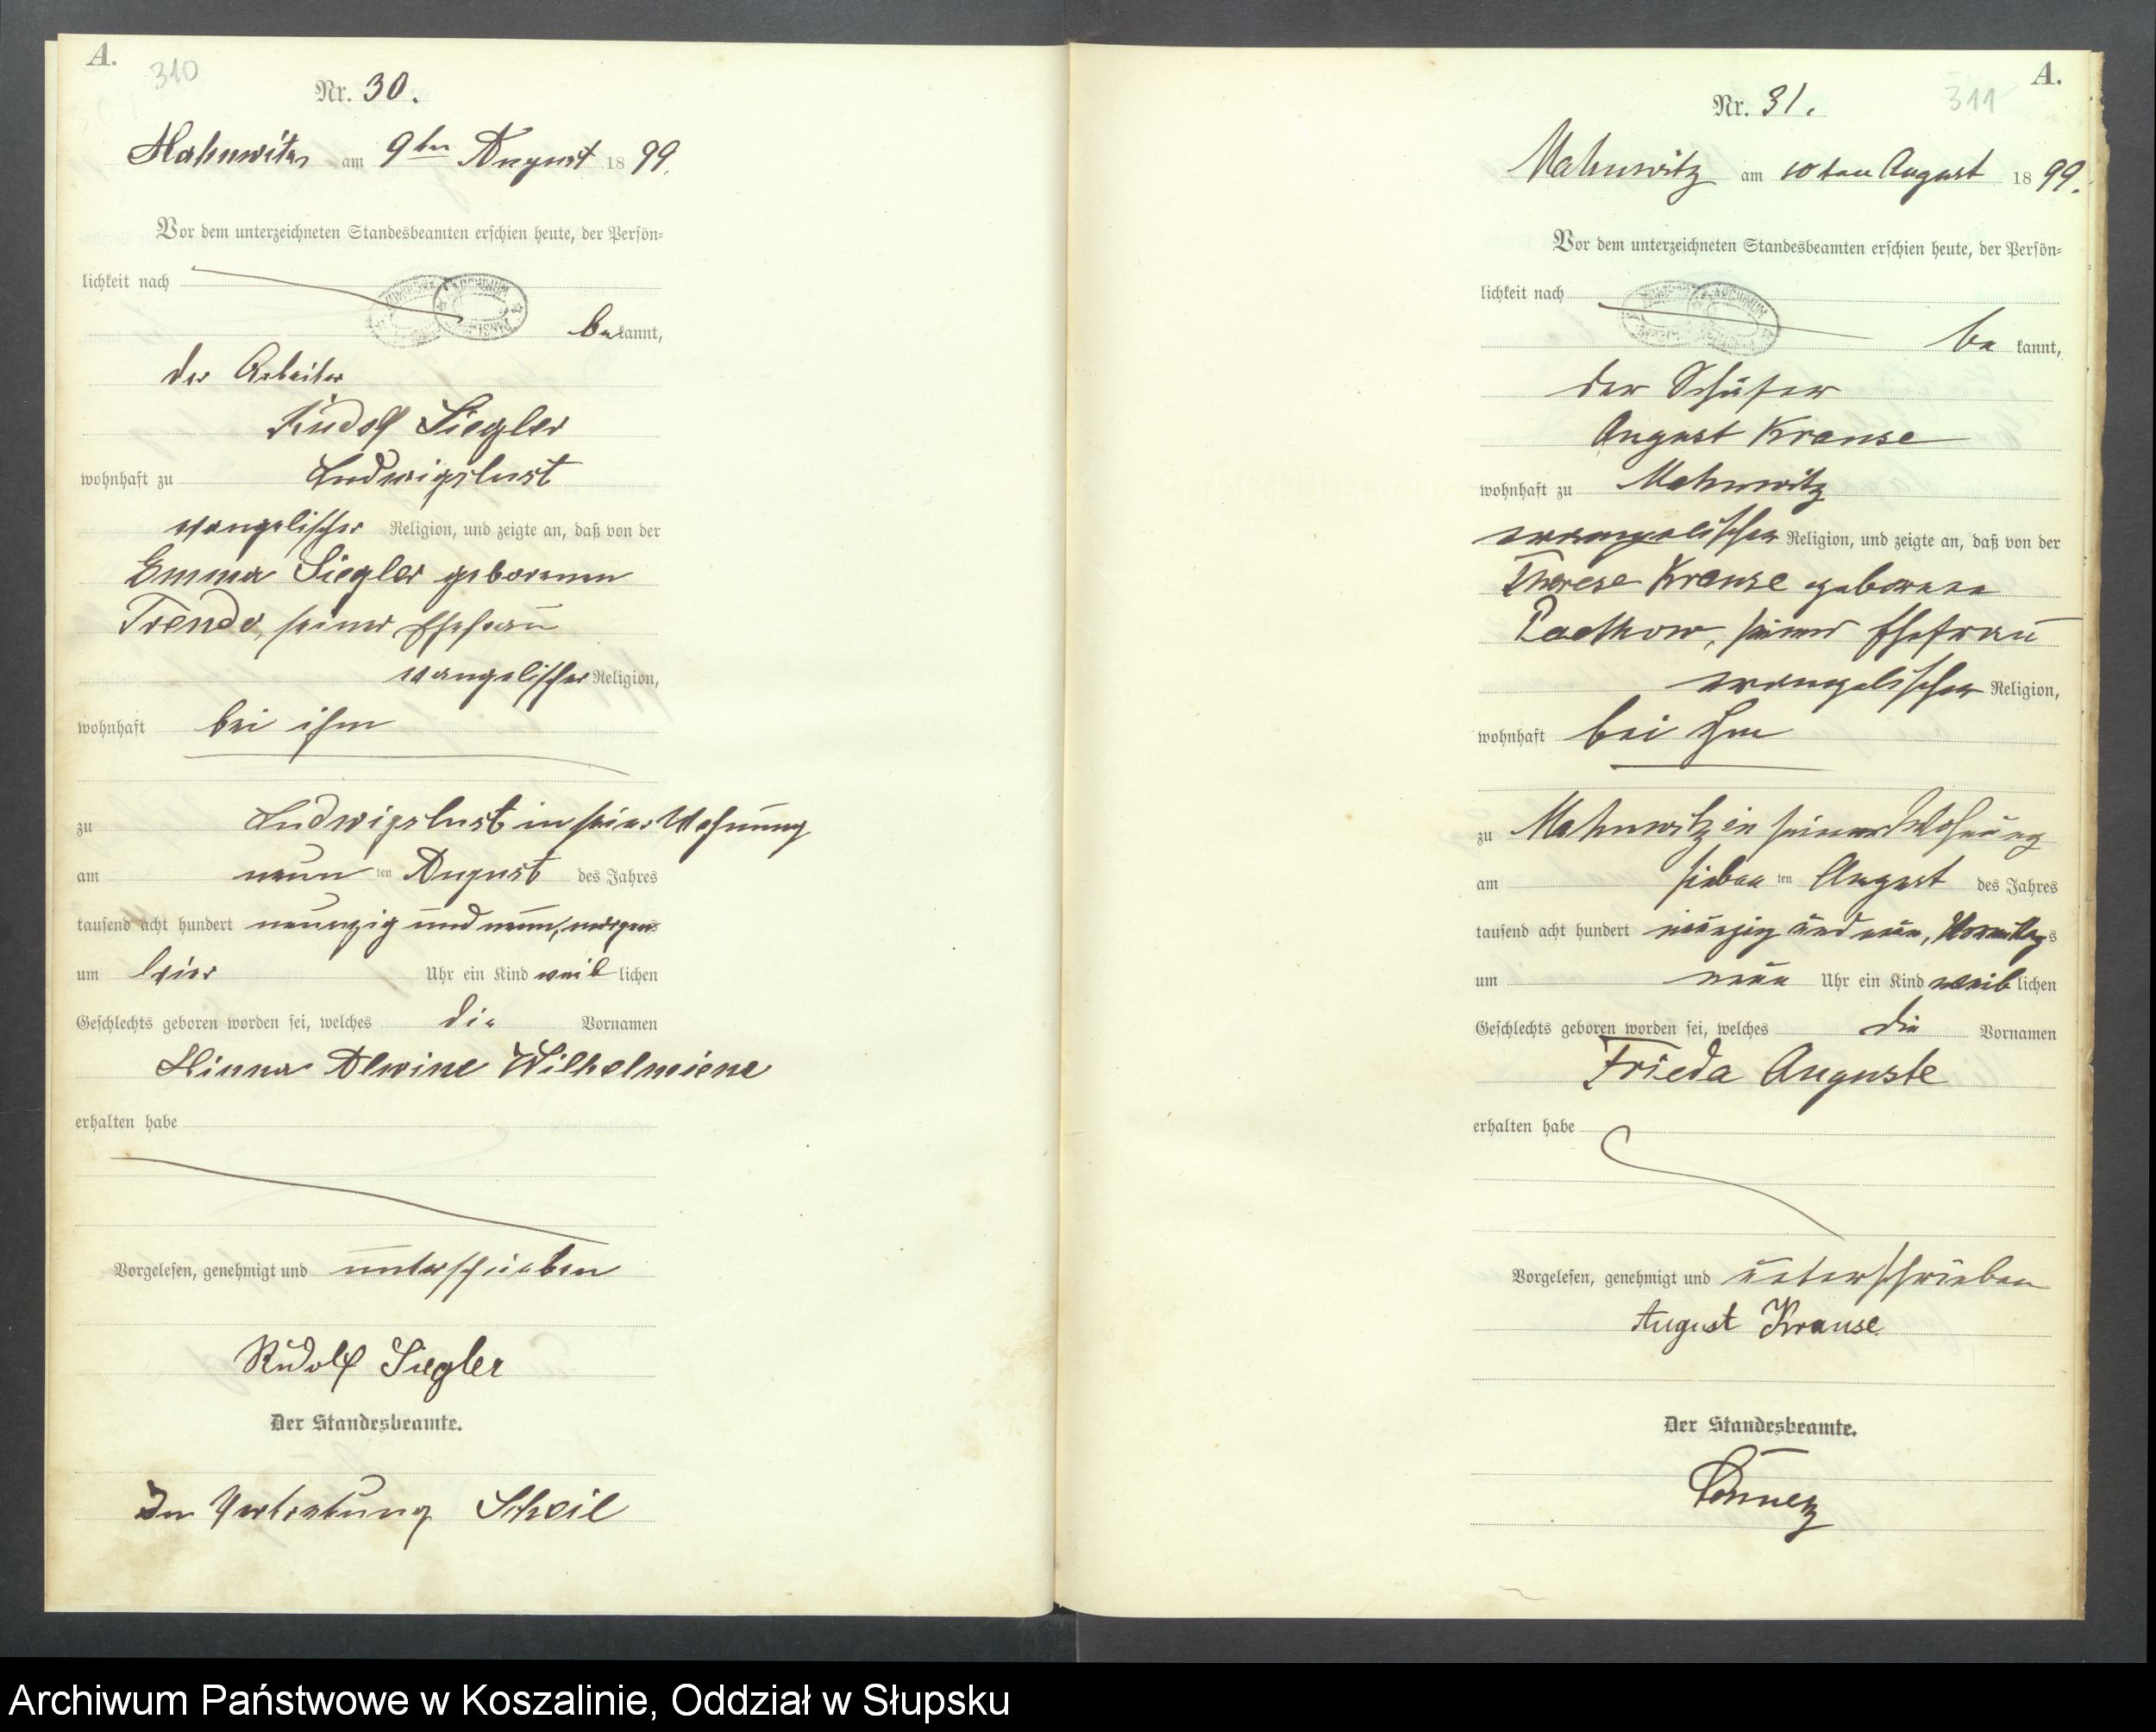 A.
310
Nr. 30.
Mahnwitz am 9ten August 1899.
Vor dem unterzeichneten Standesbeamten erschien heute, der Persön-
lichkeit nach
bekannt,
der Arbeiter
Rudolf Siegler
wohnhaft zu Ludwigslust
evangelischer Religion, und zeigte an, daß von der
Emma Siegler geborenen
seiner Ehefrau
evangelischer Religion,
wohnhaft bei ihm
zu Ludwigslust in seiner Wohnung
am neun ten August des Jahres
tausend acht hundert neunzig und neun, morgens
um vier Uhr ein Kind weiblichen
Geschlechts geboren worden sei, welches die Vornamen
Minna Alwine Wilhelmiene
erhalten habe
Vorgelesen, genehmigt und unterschrieben
Rudolf Siegler
Der Standesbeamte.
In Vertretung Scheil
A.
311
Nr. 31.
Mahnwitz am 10ten August 1899.
Vor dem unterzeichneten Standesbeamten erschien heute, der Persön-
lichkeit nach
be kannt,
der Schäfer
August Krause
wohnhaft zu Mahnwitz
evangelischer Religion, und zeigte an, daß von der
Therese Krause geborene
seiner Ehefrau
evangelischer Religion,
wohnhaft bei ihm
zu Mahnwitz in seiner Wohnung
am sieben ten August des Jahres
tausend acht hundert neunzig und neun, Vormittags
um neun Uhr ein Kind weiblichen
Geschlechts geboren worden sei, welches die Vornamen
Frieda Auguste
erhalten habe
Vorgelesen, genehmigt und unterschrieben
August Krause.
Der Standesbeamte.
Archiwum Państwowe w Koszalinie, Oddział w Słupsku